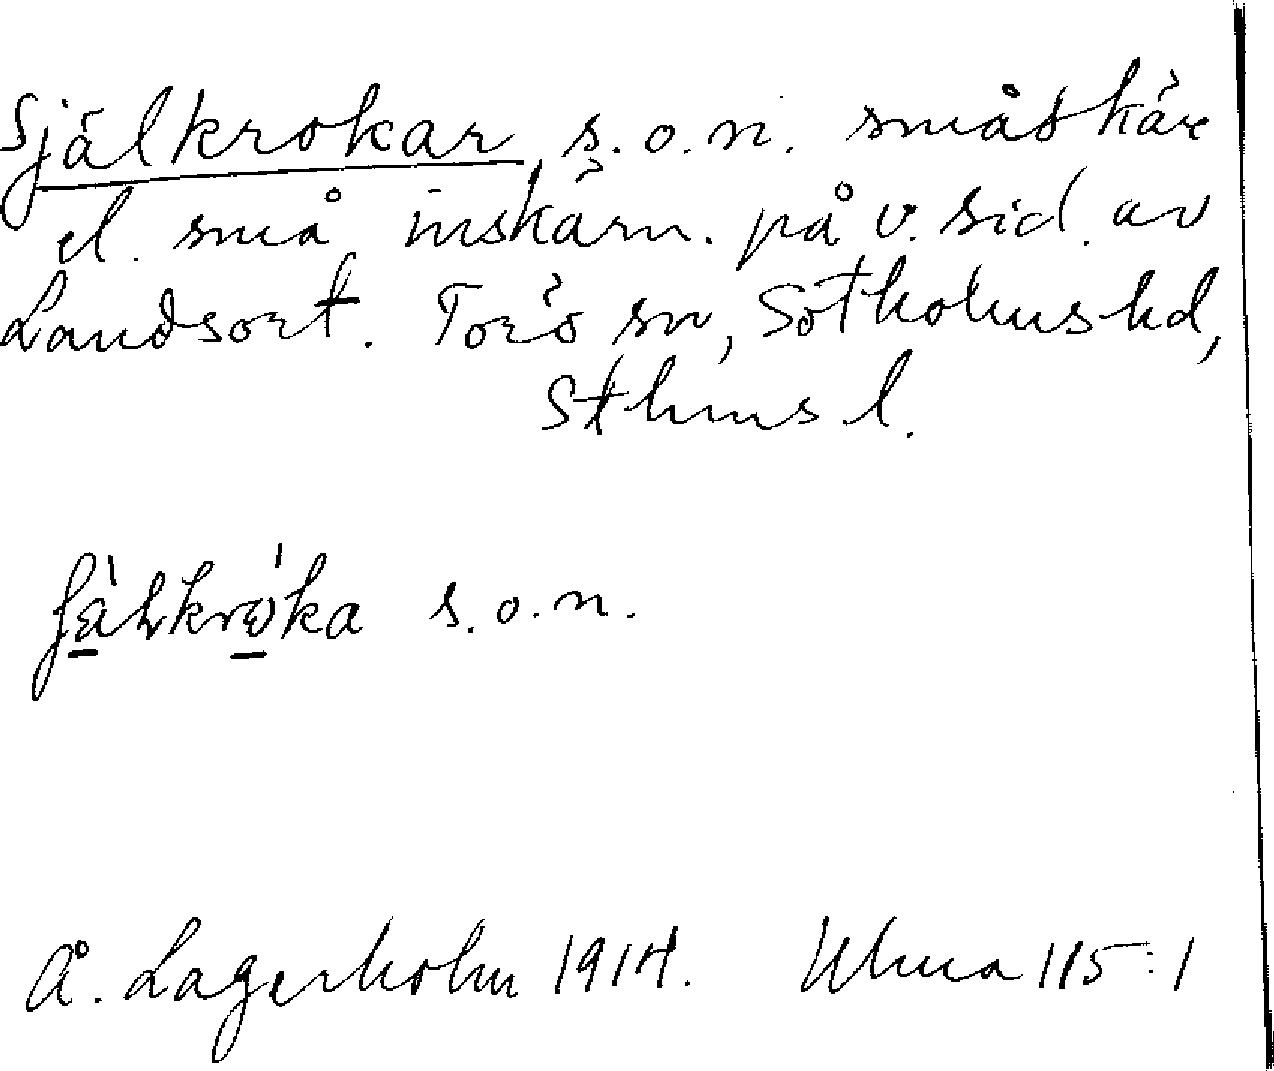 Själkrokar, s.o.n. småskär
el. små inskärn. på v. sid. av
Landsort. Torö sn, Sotholms hd,
Sthms l.
s.o.n.
Å. Lagerholm 1914. Ulma 115:1